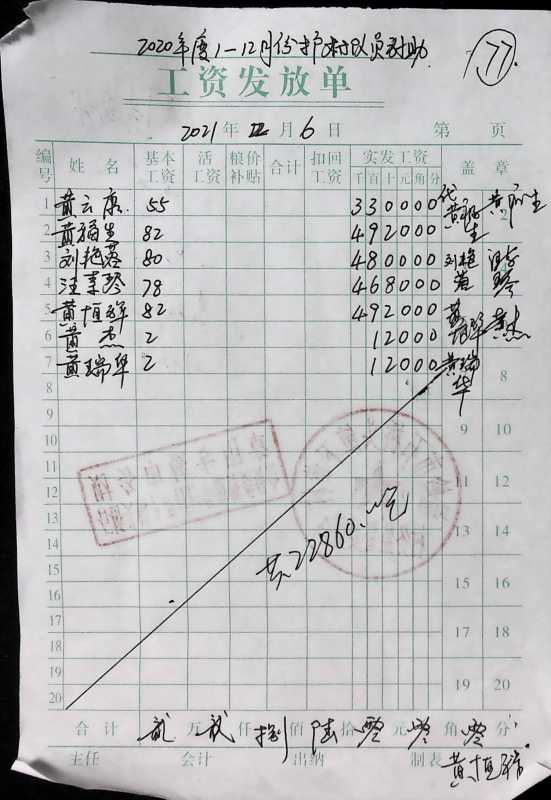 2020年度1-12月份护村队员补助
77
工资发放单
2021年 月6日 第 页
编号 姓名 基本工资 活工资 粮价补贴 合计 扣回工资 实发工资 千百十元角分 盖章
1 黄云康 55 330000 代黄福生 黄福生
2 黄福生 82 492000
3 刘艳蓉 80 480000 刘艳
4 汪来琴 78 468000
5 黄恒辉 82 492000
6 黄杰 2 12000 黄杰
7 黄瑞华 2 12000 黄瑞华
8 8
9 9 10
10
11 11 12
12
13 13 14
14
15 15 16
16
17 17 18
18
19 19 20
20
共22860.00元
合计 贰万贰仟捌佰陆拾零元零角零分
主任 会计 出纳 制表 黄恒辉